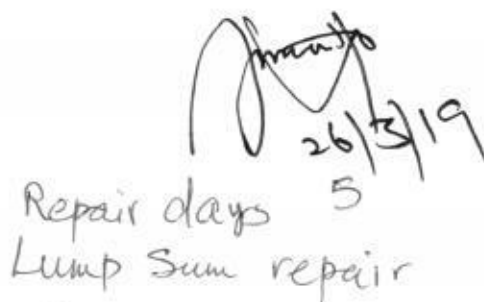 26/3/19
Repair days 5
Lump Sum repair